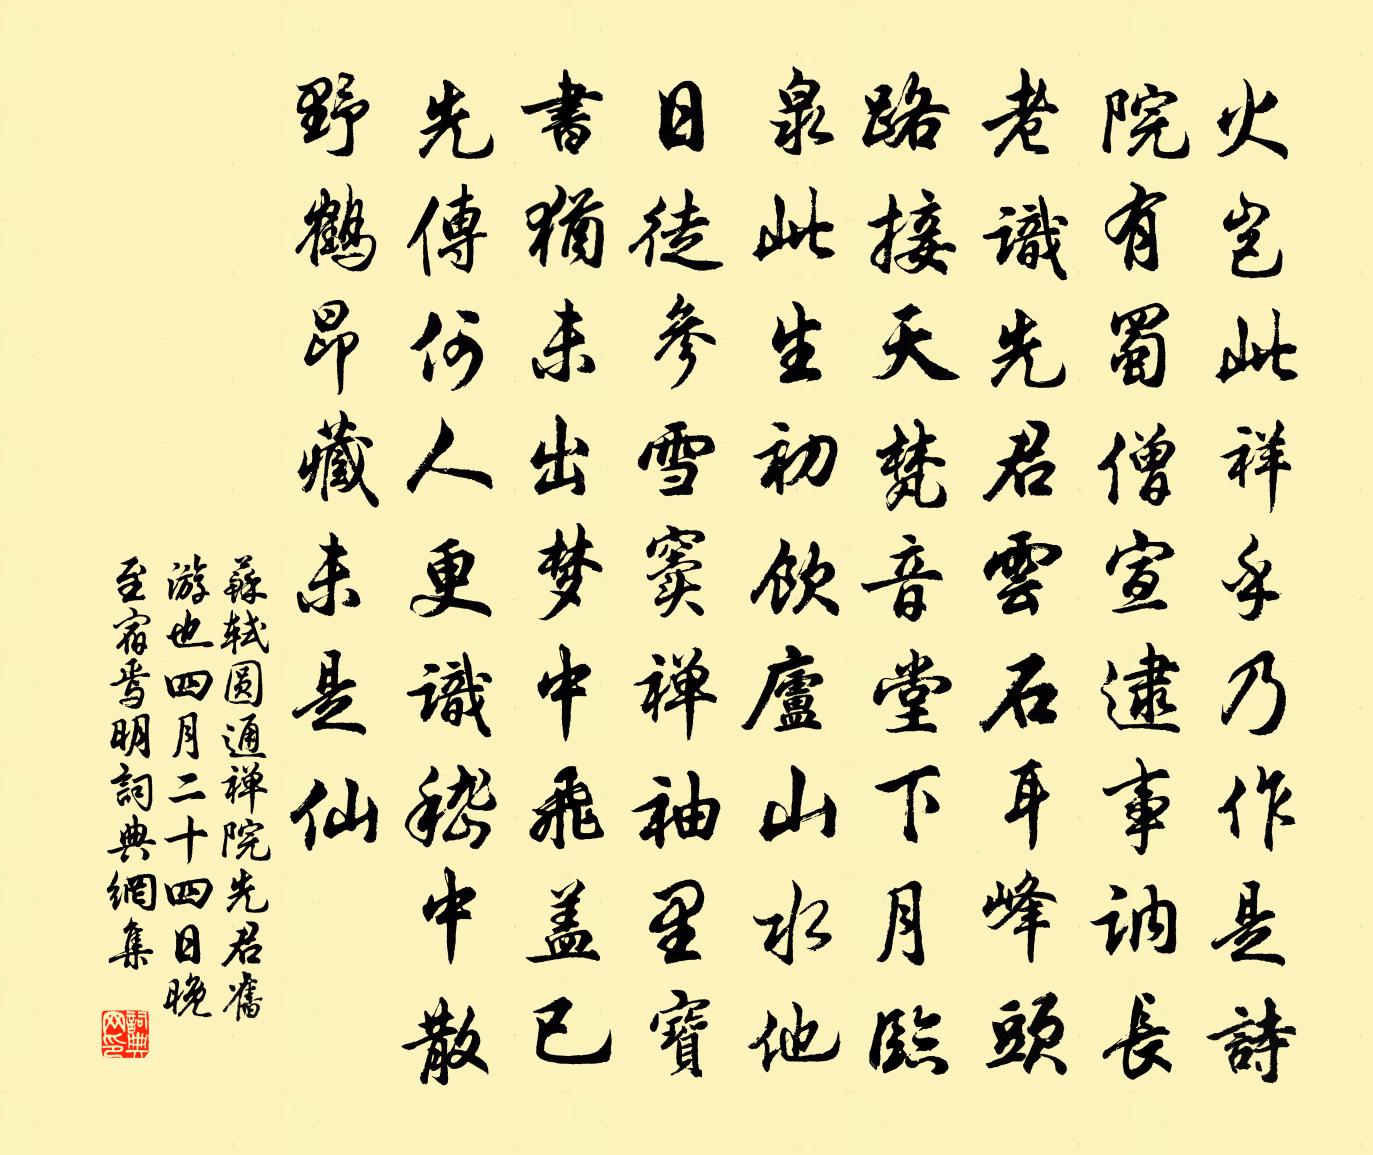 火岂此祥乎乃作是詩
院有蜀僧宣逮事訥長
老識先君雲石耳峰頭
路接天梵音堂下月臨
泉此生初飲廬山水他
日徒参雪竇禅袖里寶
書猶未出梦中飛盖已
先傳何人更識嵇中散
野鶴昂藏未是仙
蘇軾圆通禅院先君舊
游也四月二十四日晚
至宿焉明詞典網集
詞典网印